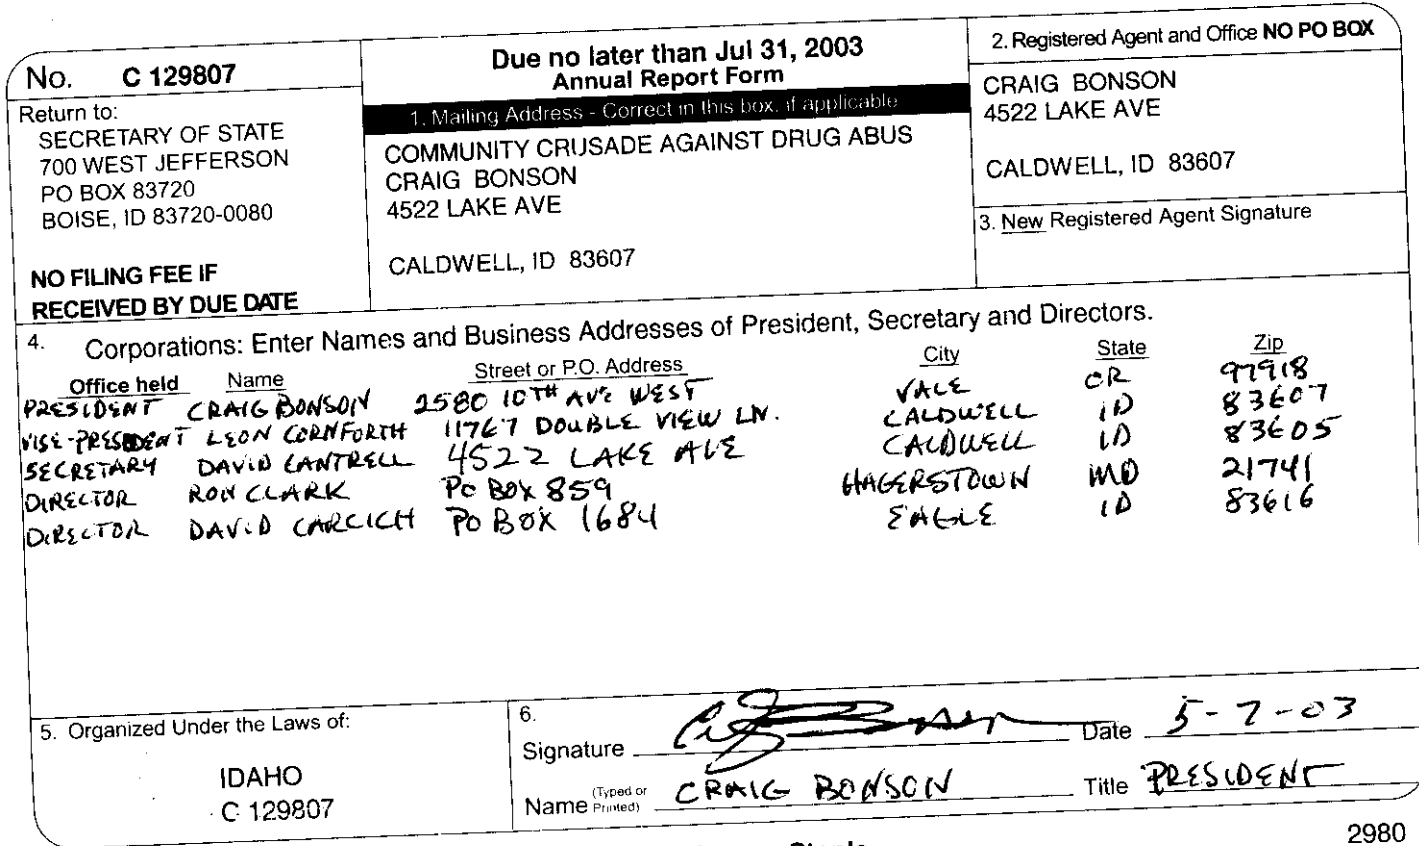 No. C 129807
Return to:
SECRETARY OF STATE
700 WEST JEFFERSON
PO BOX 83720
BOISE, ID 83720-0080
NO FILING FEE IF
RECEIVED BY DUE DATE
Due no later than Jul 31, 2003
Annual Report Form
1. Mailing Address - Correct in this box, if applicable
COMMUNITY CRUSADE AGAINST DRUG ABUS
CRAIG BONSON
4522 LAKE AVE
CALDWELL, ID 83607
2. Registered Agent and Office NO PO BOX
CRAIG BONSON
4522 LAKE AVE
CALDWELL, ID 83607
3. New Registered Agent Signature
4. Corporations: Enter Names and Business Addresses of President, Secretary and Directors.
Office held Name Street or P.O. Address City State Zip
PRESIDENT CRAIG BONSON 2580 10TH AVE WEST VALE OR 97918
VISE-PRESIDENT LEON CORNFORTH 11767 DOUBLE VIEW LN. CALDWELL ID 83607
SECRETARY DAVID CANTRELL 4522 LAKE AVE CALDWELL ID 83605
DIRECTOR RON CLARK PO BOX 859 HAGERSTOWN MD 21741
DIRECTOR DAVID CARCICH PO BOX 1684 EAGLE ID 83616
5. Organized Under the Laws of:
IDAHO
C 129807
6.
Signature Date 5-7-03
Name (Typed or Printed) CRAIG BONSON Title PRESIDENT
2980